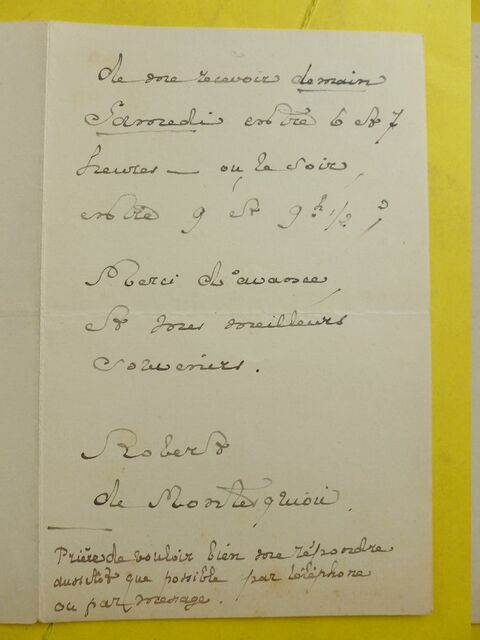 de me recevoir demain
Samedi entre 6 et 7
heures — ou le soir,
entre 9 et 9h 1/2 ?
Merci d'avance,
et mes meilleurs
souvenirs.
Robert
de Montesquiou.
Prière de vouloir bien me répondre
aussitôt que possible par téléphone
ou par message.